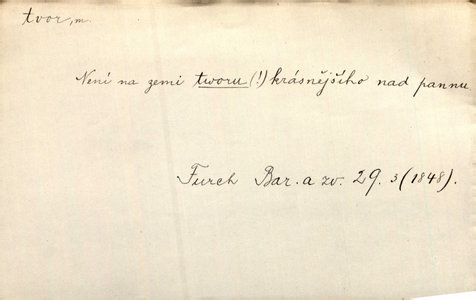 tvor, m.
Není na zemi tworu (!) krásnějšího nad pannu
Furch Bar. a zv. 29. 3 (1848).